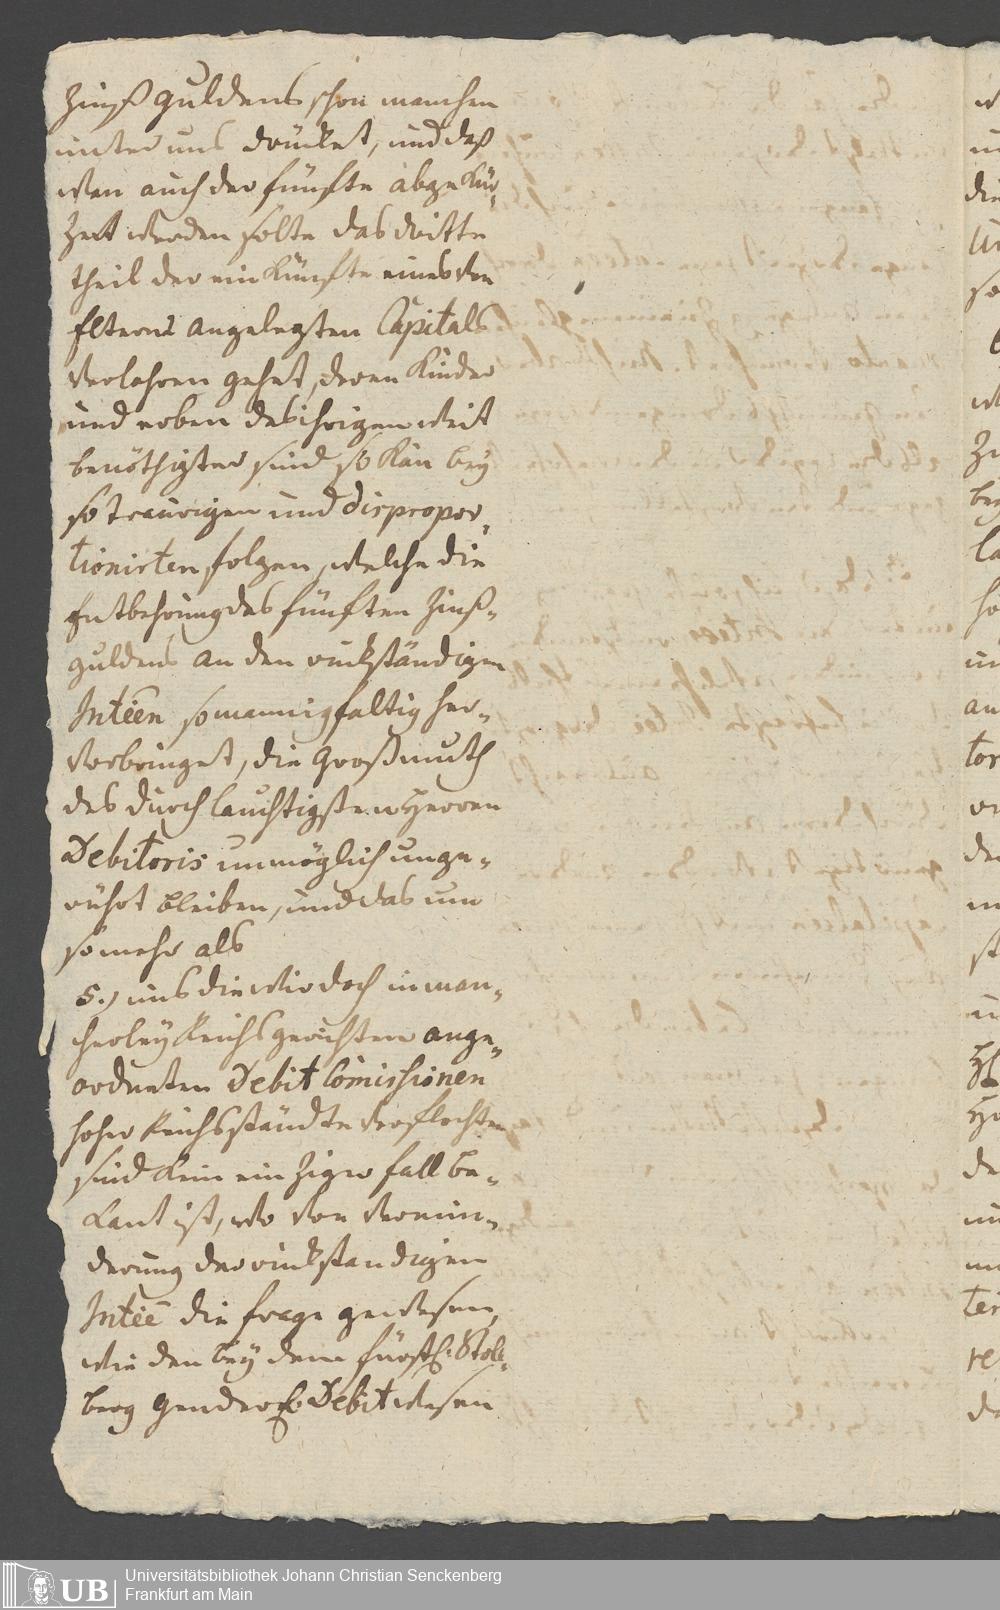 Zinß Guldens schon manchen
unter uns drücket, und daß
wen auch der fünfte abgekür-
zet werden solte das dritte
theil der einkünfte eines von
Eltern angelegten Capitals
verlohren gehet, deren Kinder
und erben des ihrigen weit
benöthigter sind so kan bey
so traurigen und dispropor-
tionirten folgen, welche die
Entbehrung des fünften Zinß-
guldens an den rückständigen
Intēēn so mannigfaltig her-
vorbringet, die Großmuth
des durchlauchtigsten Herren
Debitoris unmöglich unge-
rührt bleiben, und das um
so mehr als
5.) uns die wir doch in man-
cherley Reichsgerichten ange-
ordneten Debit Com̄issionen
hoher Reichsständte verflochten
sind kein einziger fall be-
kant ist, wo von vermin-
derung der rückstandigen
Intēē die frage gewesen,
wie den bey dem fürstl: Stoll-
berg Geudern Debitwesen
Universitätsbibliothek Johann Christian Senckenberg
Frankfurt am Main
UB